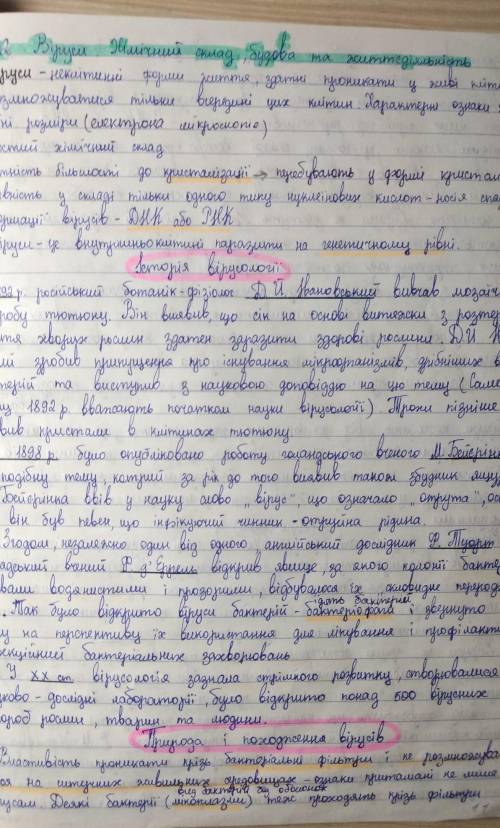 Віруси Хімічний склад, будова та життєдіяльність
руси - неклітинні форми життя, здатні проникати у живі кліт
змножуватися тільки всередині цих клітин. Характерні ознаки
ні розміри (електрона мікроскопія)
стий хімічний склад
тність більшості до кристалізації → перебувають у формі кристал
вність у складі тільки одного типу нуклеїнових кислот - носія спа
ормації вірусів - ДНК або РНК.
іруси - це внутрішньоклітинні паразити на генетичному рівні.
Історія вірусології
92 р. російський ботанік-фізіолог Д. Й. Івановський вивчав мозаїч
робу тютюну. Він виявив, що сік на основі витяжки з розтер
тя хворих рослин здатен заразити здорові рослини. Д. Й. 
ий зробив припущення про існування мікроорганізмів, дрібніших в
терій та виступив з науковою доповіддю на цю тему (Саме
1892 р. вважають початком науки вірусології). Трохи пізніше
вив кристали в клітинах тютюну.
1898 р. було опубліковано роботу голандського вченого М. Бейєрінк
подібну тему, котрий за рік до того виявив також збудник ящур
Бейєрінка ввів у науку слово "вірус", що означало "отрута", ос
він був певен, що інфікуючий чинник - отруйна рідина.
Згодом, незалежно один від одного англійський дослідник Ф. Туорт
адський вчений Ф. д'Еррель відкрив явище, за якого колонії бактер
вали водянистими і прозорими, відбувалося їх
їдять бактерії
. Так було відкрито віруси бактерій - бактеріофаги і звернуто
гу на перспективу їх використання для лікування і профілакти
екційний бактеріальних захворювань
У ХХ ст. вірусологія зазнала стрімкого розвитку, створювалися
ково - дослідні лабораторії, було відкрито понад 500 вірусних
ороб рослин, тварин та людини.
Природа і походження вірусів
Властивість проникати крізь бактеріальні фільтри і не розмножува
ся на штучних живильних середовищах - ознаки притаманні не лише
вид бактерій без оболонок
русам. Деякі бактерії (мікоплазми) теж проходять крізь фільтри